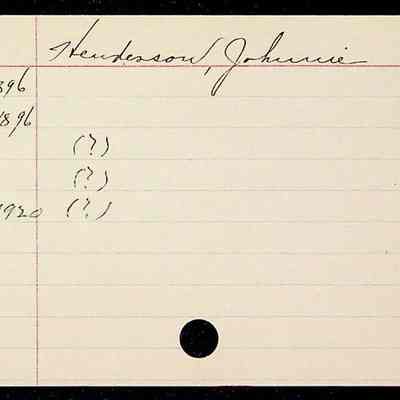 Henderson, Johnnie
896
1896
(?)
(?)
1920 (?)